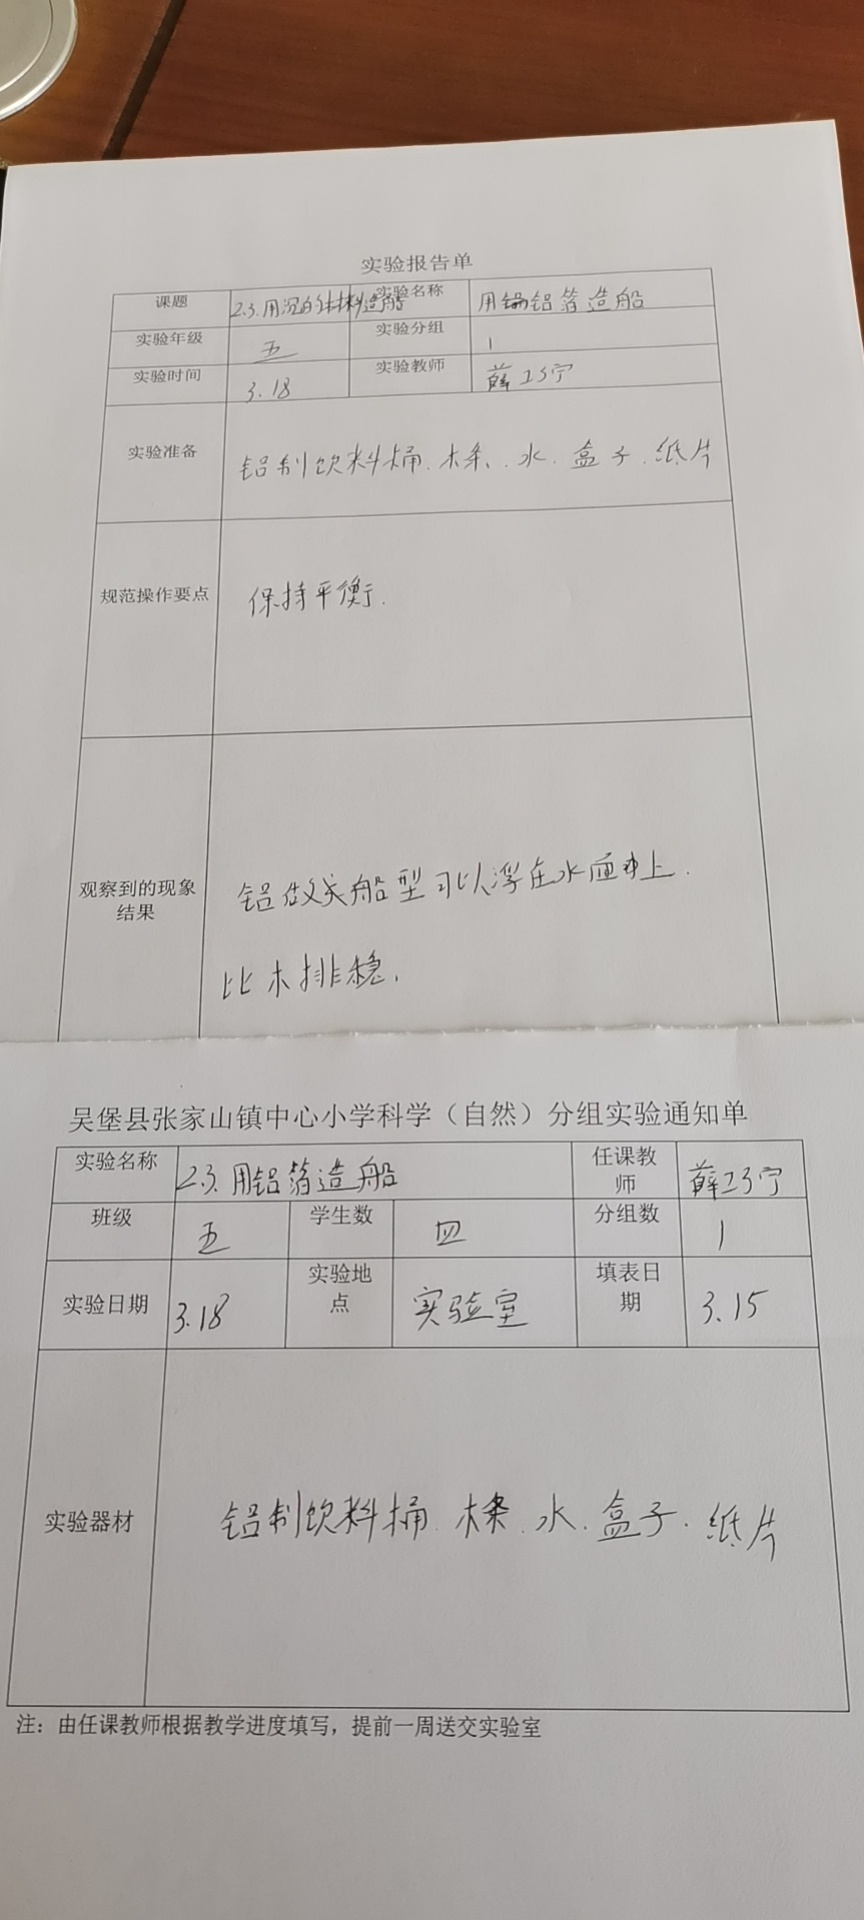 实验报告单
课题 2.3.用沉的材料造船 实验名称 用锡铝箔造船
实验年级 五 实验分组 1
实验时间 3.18 实验教师 薛巧宁
实验准备 铝制饮料桶.木条.水.盒子.纸片
规范操作要点 保持平衡.
观察到的现象
结果
铝做成船型可以浮在水面上.
比木排稳.
吴堡县张家山镇中心小学科学（自然）分组实验通知单
实验名称 2.3.用铝箔造船 任课教
师 薛巧宁
班级 五 学生数 四 分组数 1
实验日期 3.18 实验地
点 实验室 填表日
期 3.15
实验器材 铝制饮料桶.木条.水.盒子.纸片
注：由任课教师根据教学进度填写，提前一周送交实验室